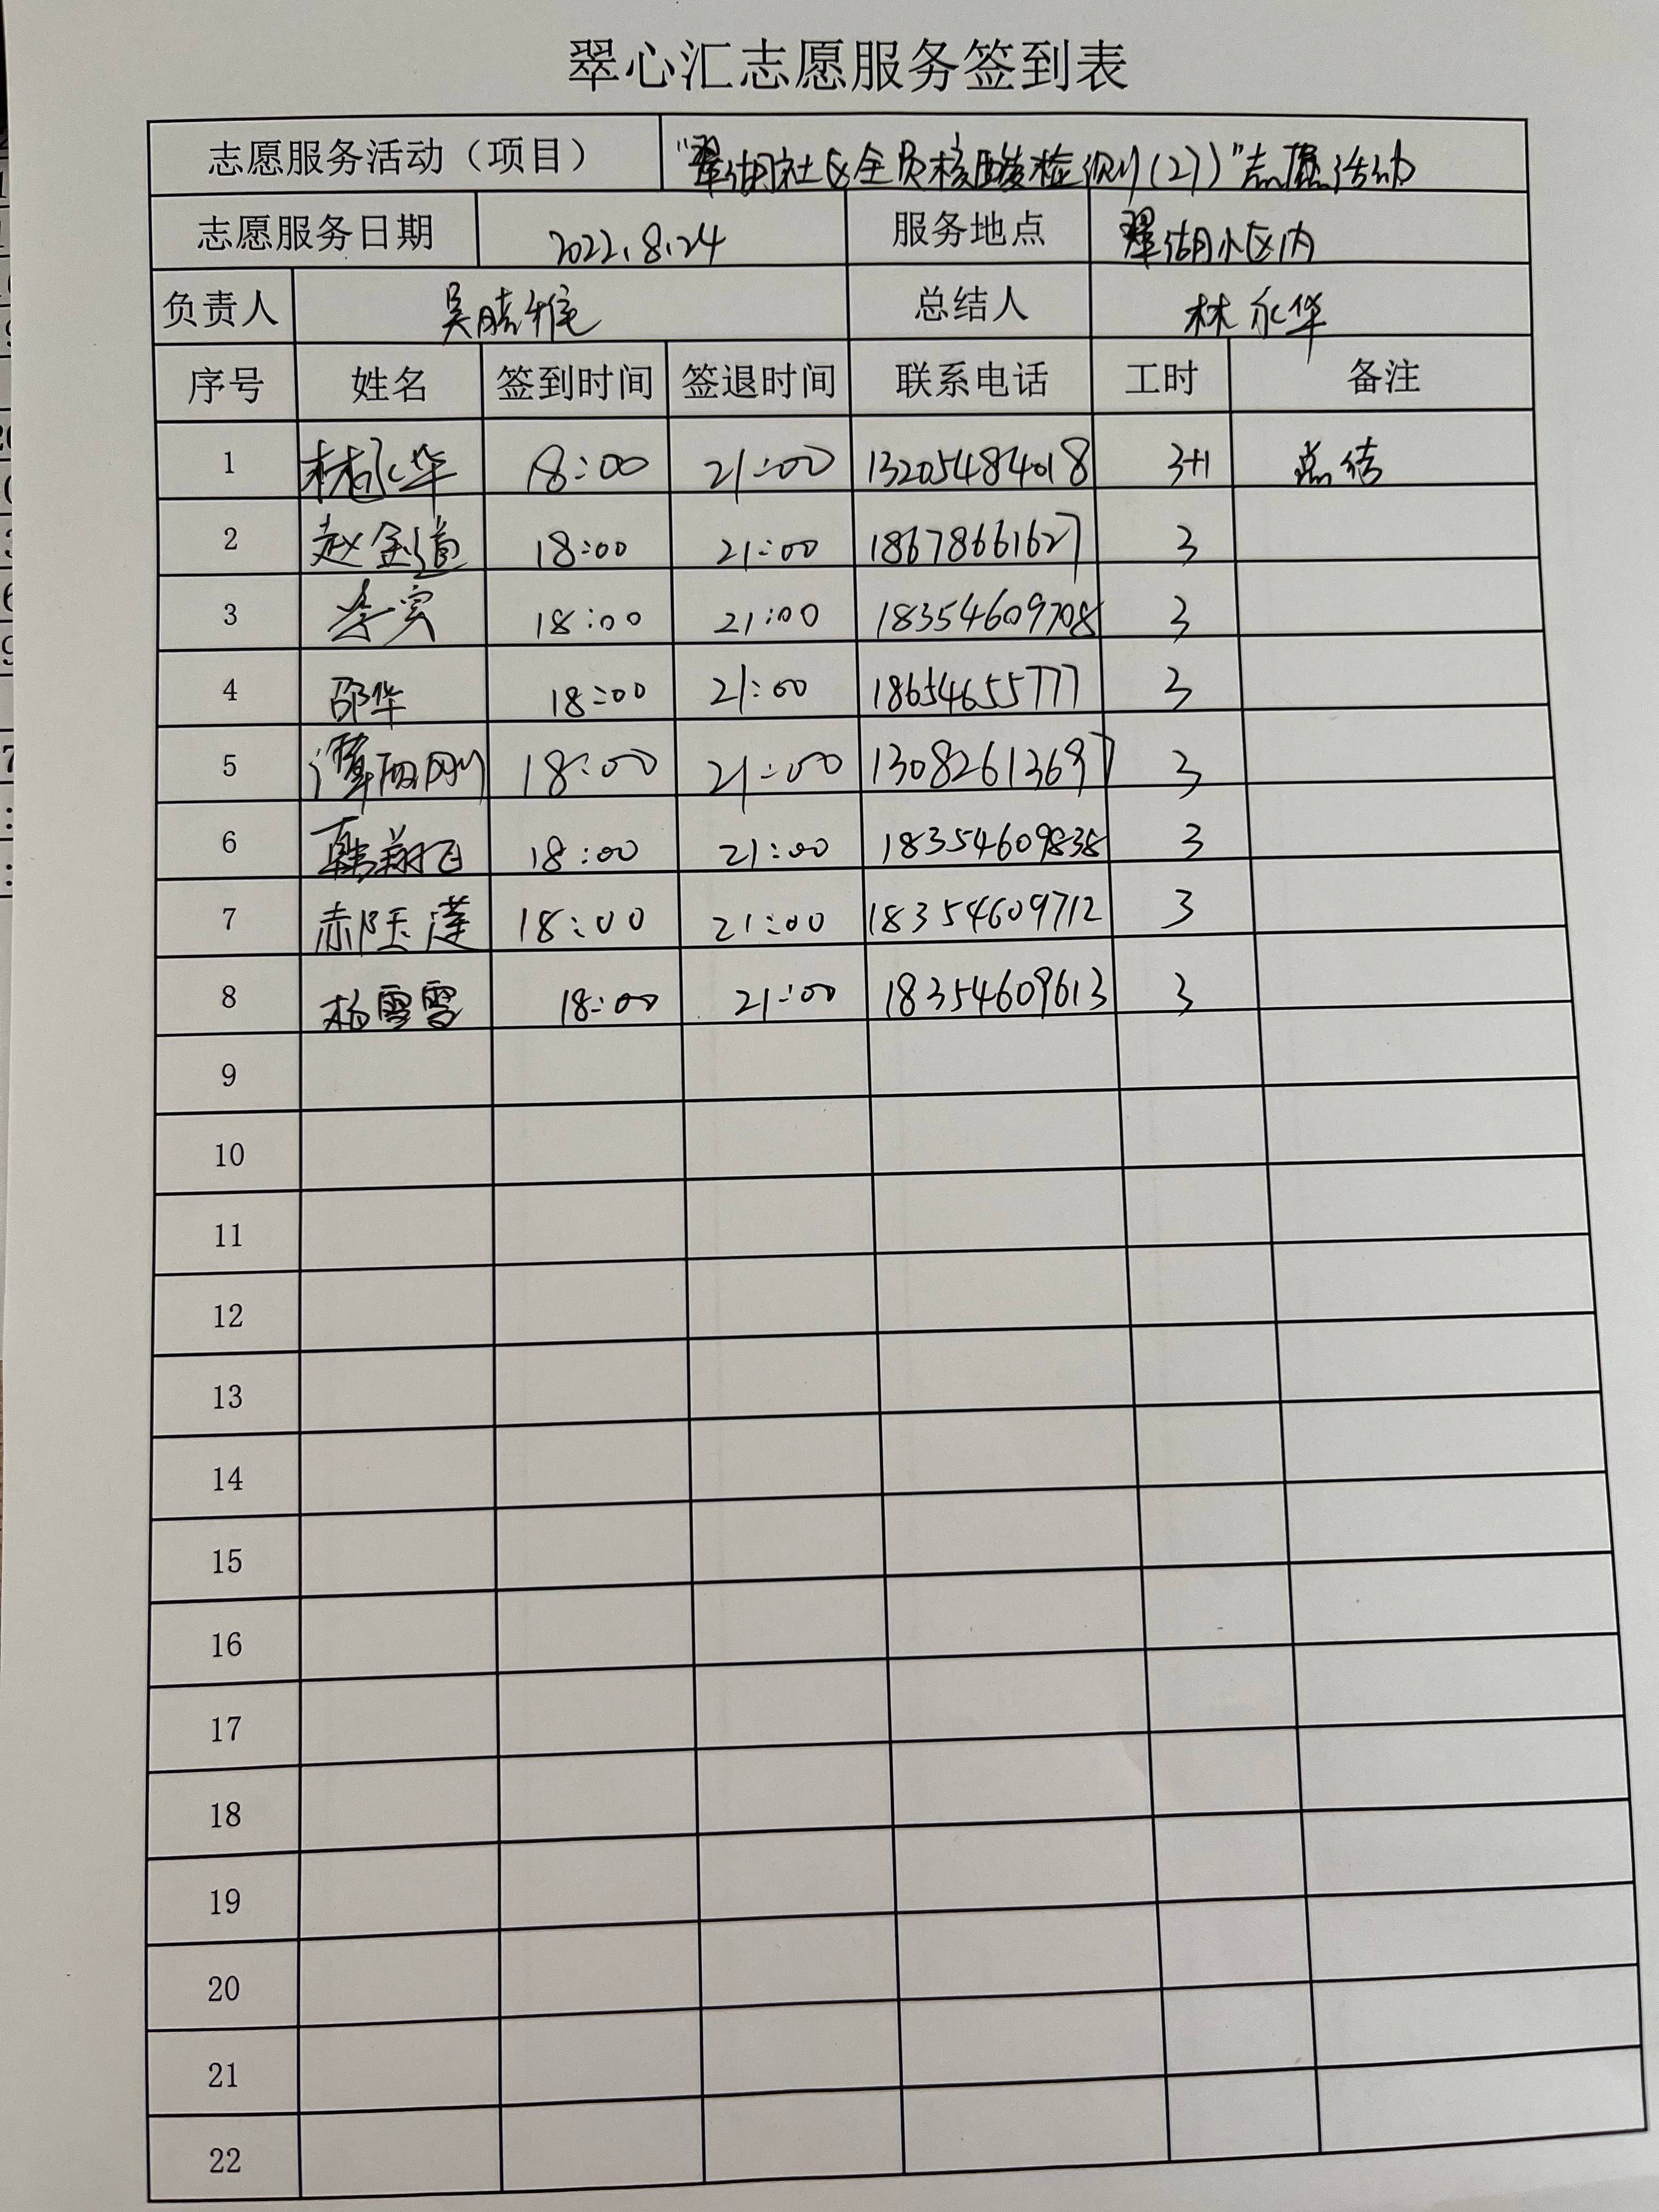 翠心汇志愿服务签到表
志愿服务活动（项目） "翠湖社区全员核酸检测(27)"志愿活动
志愿服务日期 2022.8.24 服务地点 翠湖小区内
负责人 吴 总结人 林永华
序号 姓名 签到时间 签退时间 联系电话 工时 备注
1 林永华 18:00 21:00 13205484018 3+1 总结
2 赵金道 18:00 21:00 18678661627 3
3 李实 18:00 21:00 18354609708 3
4 邵华 18:00 21:00 18654655777 3
5 谭丽刚 18:00 21:00 13082613697 3
6 韩翔飞 18:00 21:00 18354609838 3
7 18:00 21:00 18354609712 3
8 杨雪雪 18:00 21:00 18354609613 3
9
10
11
12
13
14
15
16
17
18
19
20
21
22